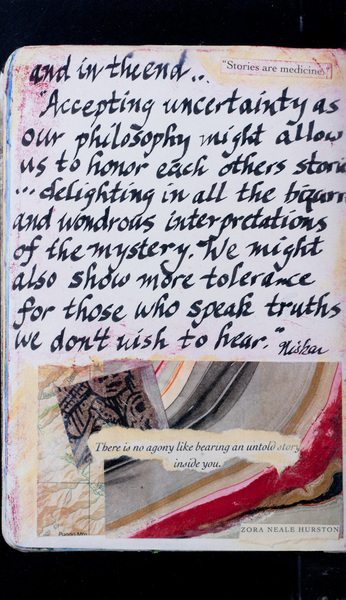 and in the end...
"Stories are medicine."
Accepting uncertainty as
our philosophy might allow
us to honor each others storie
... delighting in all the bizarr
and wondrous interpretations
of the mystery. We might
also show more tolerance
for those who speak truths
we don't wish to hear."
There is no agony like bearing an untold story
inside you.
ZORA NEALE HURSTON